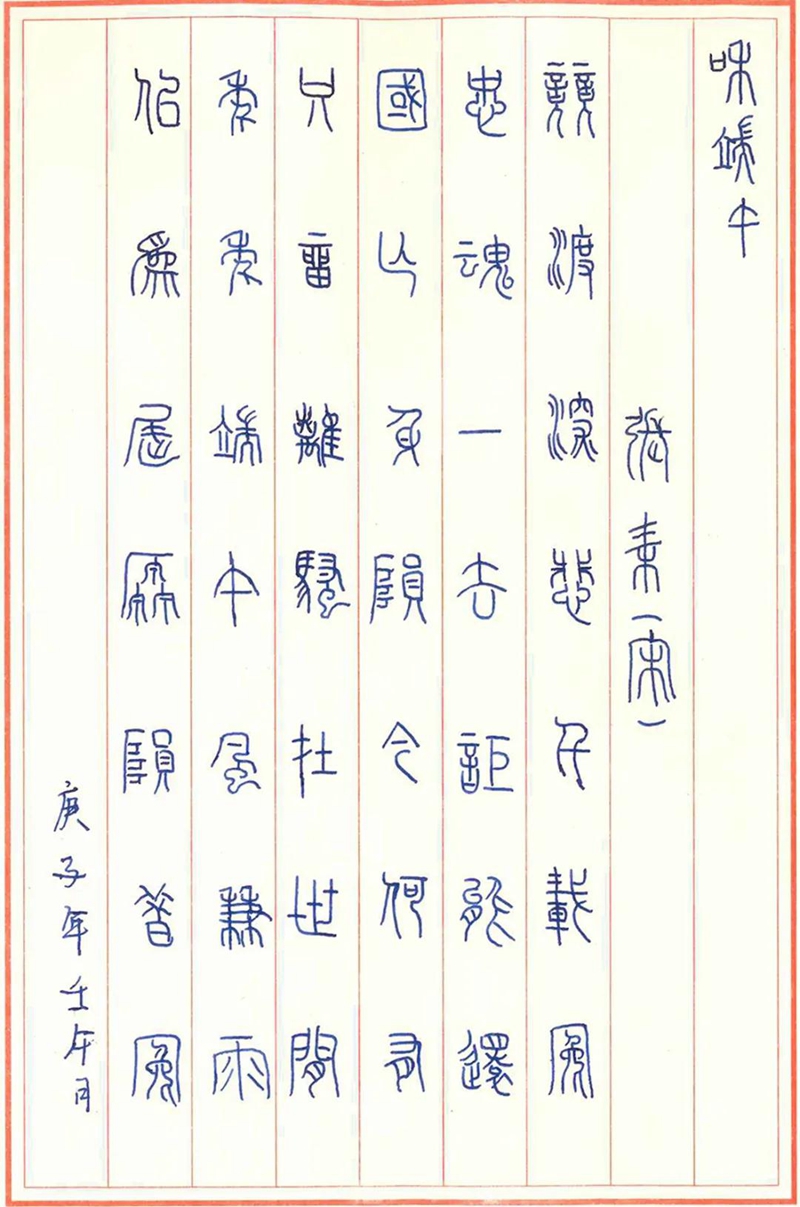 和端午
張耒（宋）
競渡深悲千載冤
忠魂一去詎能還
國亡身隕今何有
只畱離騷在世間
秊秊端午風兼雨
佀爲屈厵隕昔冤
庚子年壬午月